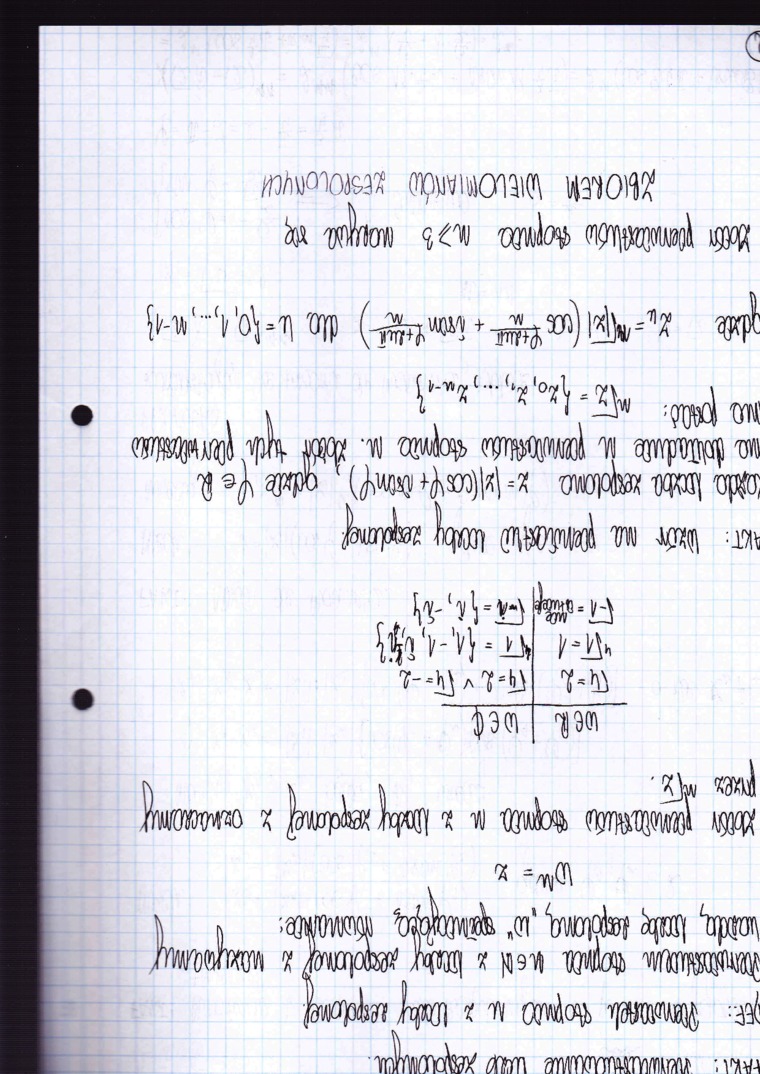 FAKT: Pierwiastkowanie liczb zespolonych.
DEF: Pierwiastek stopnia n z liczby zespolonej
Pierwiastkiem stopnia n∈N z liczby zespolonej z nazywamy
każdą liczbę zespoloną "w" spełniającą równanie:
wⁿ = z
Zbiór pierwiastków stopnia n z liczby zespolonej z oznaczamy
przez ⁿ√z.
w∈R | w∈C
√4 = 2 | √4 = 2 ∨ √4 = -2
⁴√1 = 1 | ⁴√1 = {1, -1, i, -i}
√-1 = nie istnieje | √-1 = {i, -i}
FAKT: Wzór na pierwiastki liczby zespolonej
Każda liczba zespolona z = |z|(cosφ + isinφ), gdzie φ∈R
ma dokładnie n pierwiastków stopnia n. Zbiór tych pierwiastków
ma postać: ⁿ√z = {z₀, z₁, ..., zₙ₋₁}
gdzie zₖ = ⁿ√|z| (cos (φ+2kπ)/n + isin (φ+2kπ)/n) dla k = {0, 1, ..., n-1}
Zbiór pierwiastków stopnia n≥3 nazywa się
ZBIOREM WIELOMIANÓW ZESPOLONYCH